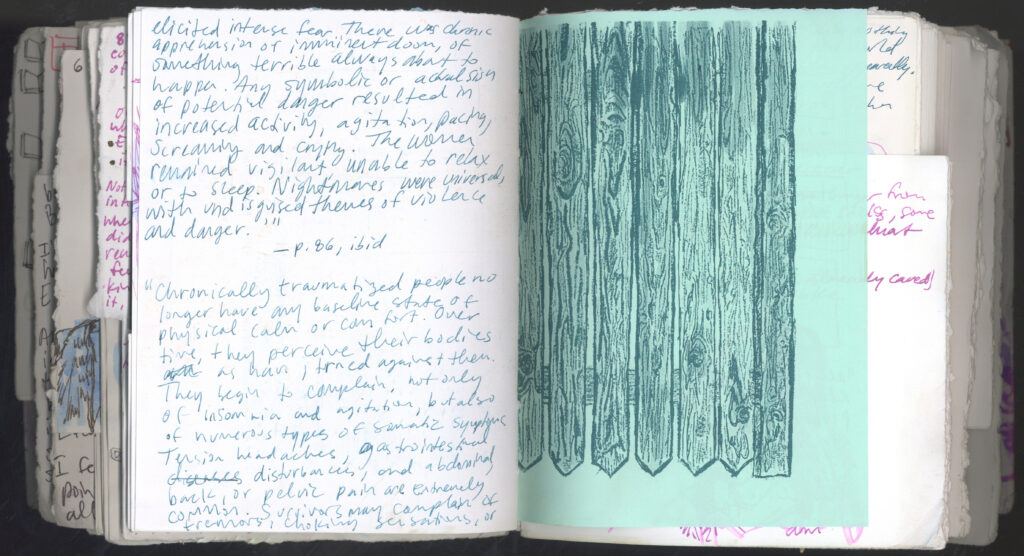 elicited intense fear. There was chronic
apprehension of imminent doom, of
something terrible always about to
happen. Any symbolic or actual sign
of potential danger resulted in
increased activity, agitation, pacing,
screaming and crying. The women
remained vigilant unable to relax
or to sleep. Nightmares were universal,
with undisguised themes of violence
and danger.'"
— p. 86, ibid
"Chronically traumatized people no
longer have any baseline state of
physical calm or comfort. Over
time, they perceive their bodies
as having turned against them.
They begin to complain, not only
of insomnia and agitation, but also
of numerous types of somatic symptoms.
Tension headaches, gastrointestinal
disturbances, and abdominal,
back, or pelvic pain are extremely
common. Survivors may complain of
tremors, choking sensations, or
6
8
of
Not
in
it,
I fe
poin
all
from
some